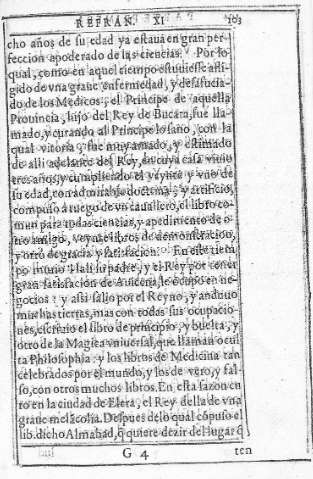 REFRAN. XI 103
cho años de su edad ya estaua en gran per-
feccion apoderado de las ciencias. Por lo
qual, como en aquel tiempo estuuiesse afli-
gido de vna graue enfermedad, y desafucia-
do de los Medicos, el Principe de aquella
Prouincia, hijo del Rey de Bucara, fue lla-
mado, y curando al Principe lo sano, con la
qual vitoria, fue muy amado, y estimado
de alli adelante del Rey, en cuya casa viuio
tres años, y cumpliendo el veynte y vno de
su edad, con admirable doctrina, y artificio,
compuso a ruego de vn cauallero, el libro co-
mun para todas ciencias, y a pedimento de o-
tro amigo, veynte libros de demonstracion,
y otro de gracia y satisfacion. En este tiem
po murio Hali su padre, y el Rey por tener
gran satisfacion de Auicena, le ocupò en ne-
gocios: y assi salio por el Reyno, y anduuo
muchas tierras, mas con todas sus ocupacio-
nes, escriuio el libro de principio, y buelta, y
otro de la Magica vniuersal, que llaman ocul
ta Philosophia: y los libros de Medicina tan
celebrados por el mundo, y los de vero, y fal-
so, con otros muchos libros. En esta sazon en
tro en la ciudad de Elera, el Rey della de vna
graue melācolia. Despues de lo qual cōpuso el
lib. dicho Almahad, q̄ quiere dezir del lugar q̄
G 4 ten